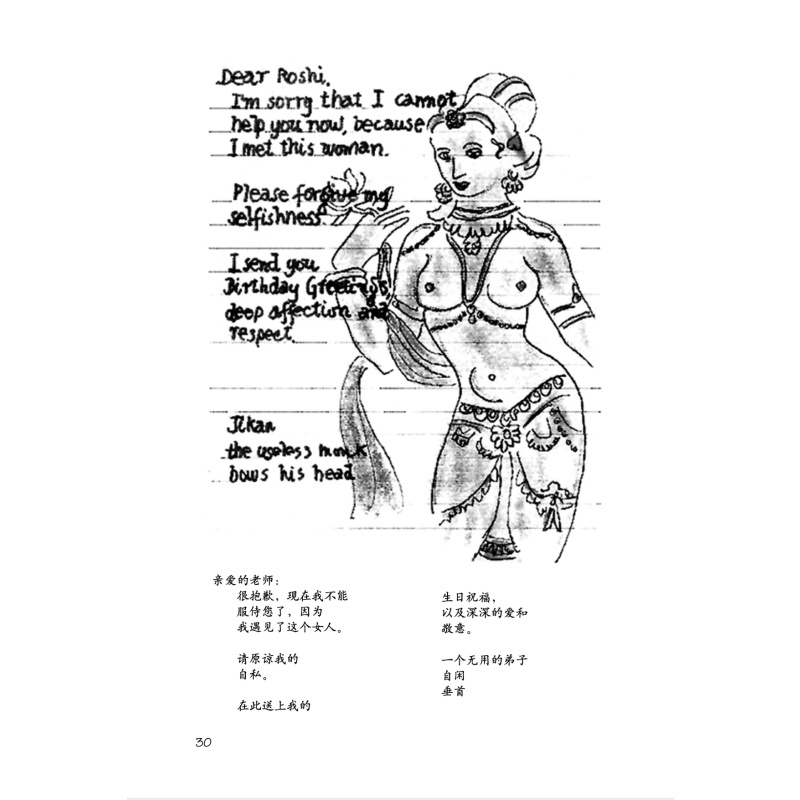 Dear Roshi,
I'm sorry that I cannot
help you now, because
I met this woman.
Please forgive my
selfishness
I send you
Birthday Greetings
deep affection and
respect.
Jikan
the useless monk
bows his head
亲爱的老师：
很抱歉，现在我不能
服侍您了，因为
我遇见了这个女人。
请原谅我的
自私。
在此送上我的
生日祝福，
以及深深的爱和
敬意。
一个无用的弟子
自闲
垂首
30